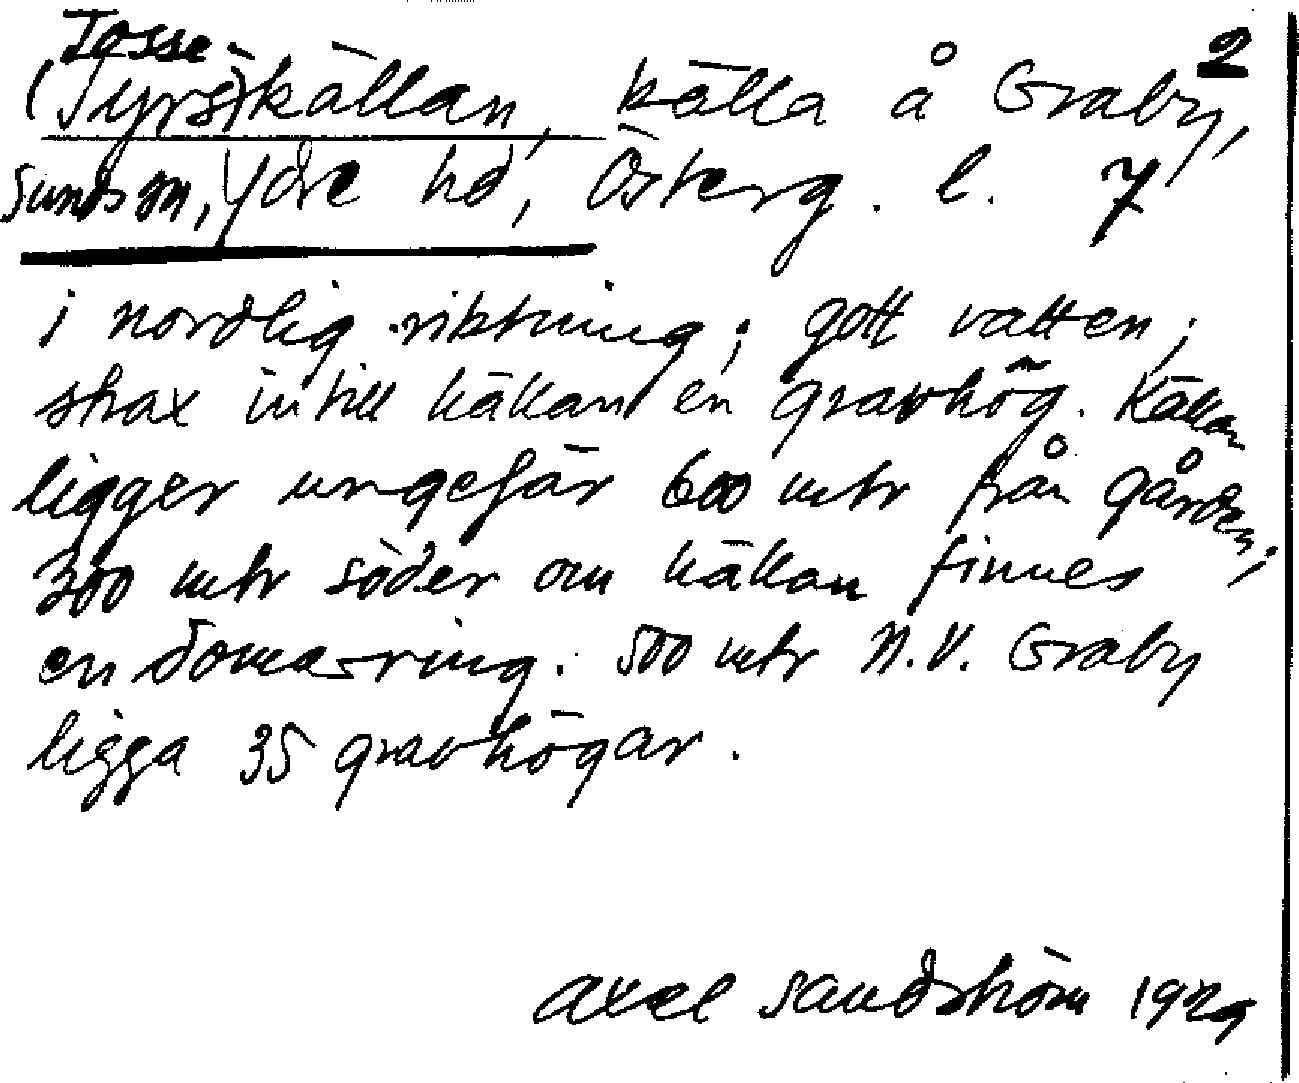 Tosse 2
(Tyrs)källan, källa å Graby,
Sunds sn, Ydre hd, Österg. l. 7
i nordlig riktning; gott vatten;
strax intill källan en gravhög. Källan
ligger ungefär 600 mtr från gården;
300 mtr söder om källan finnes
en domarring. 500 mtr N.V. Graby
ligga 35 gravhögar.
Axel Sandström 1929